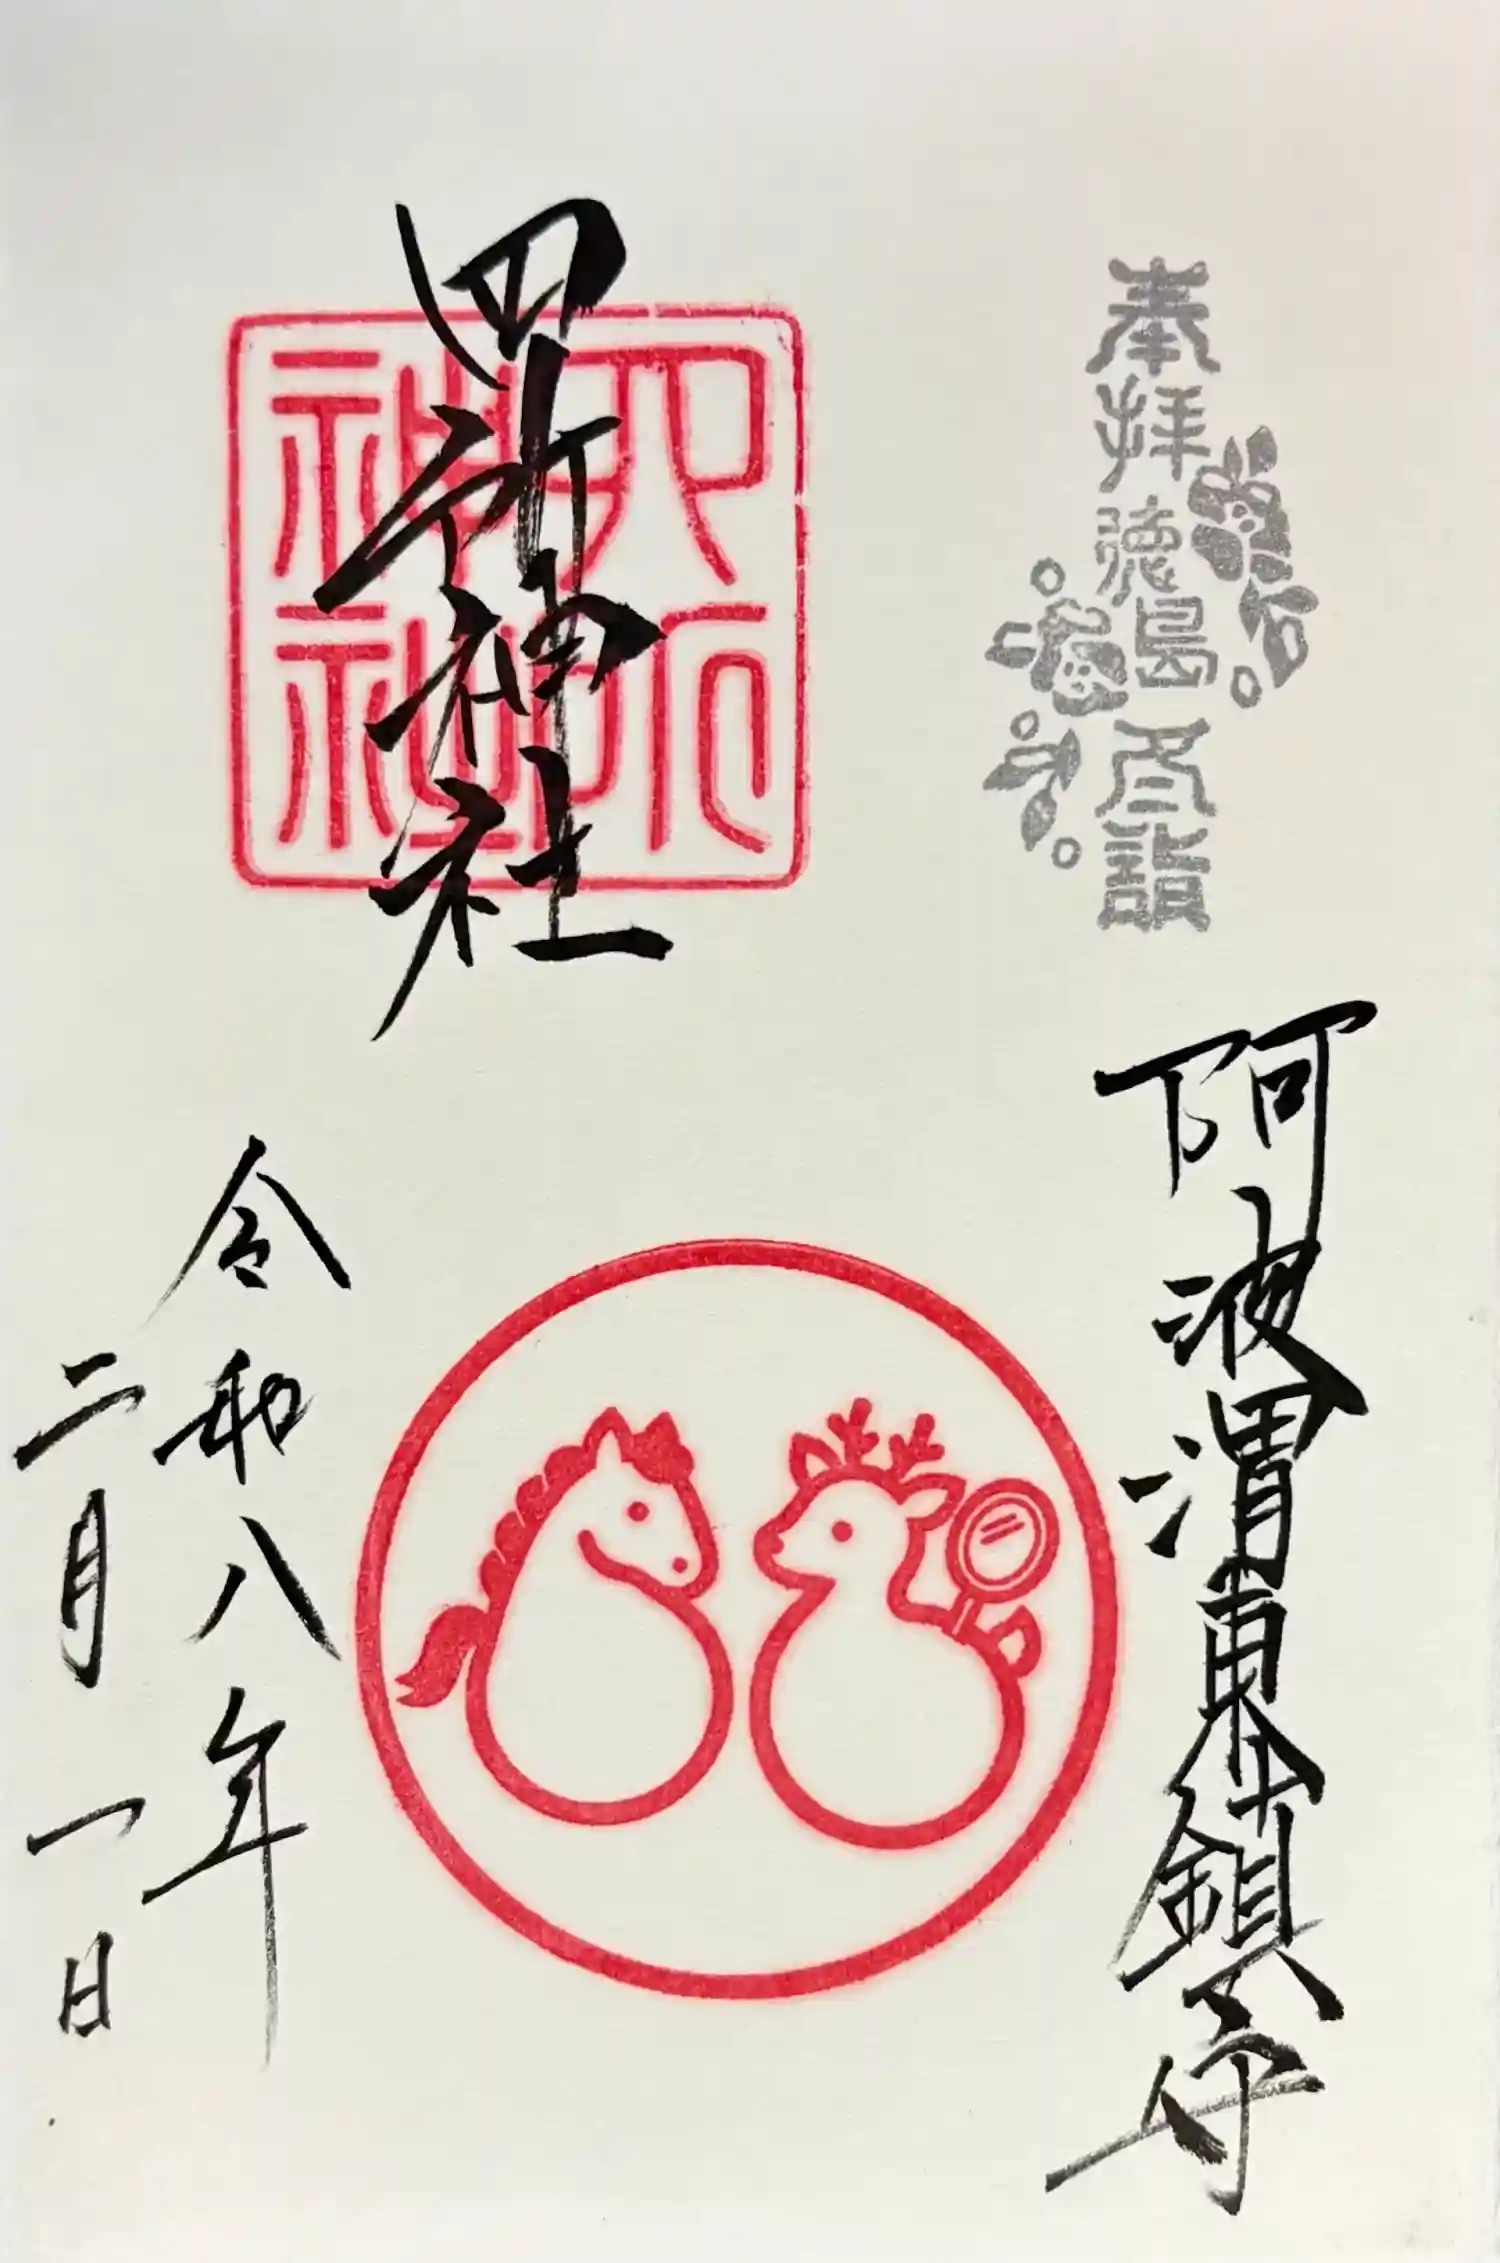 奉拝 徳島 冬詣
阿波渭東鎮守
四所神社
四所
神社
令和八年
二月一日